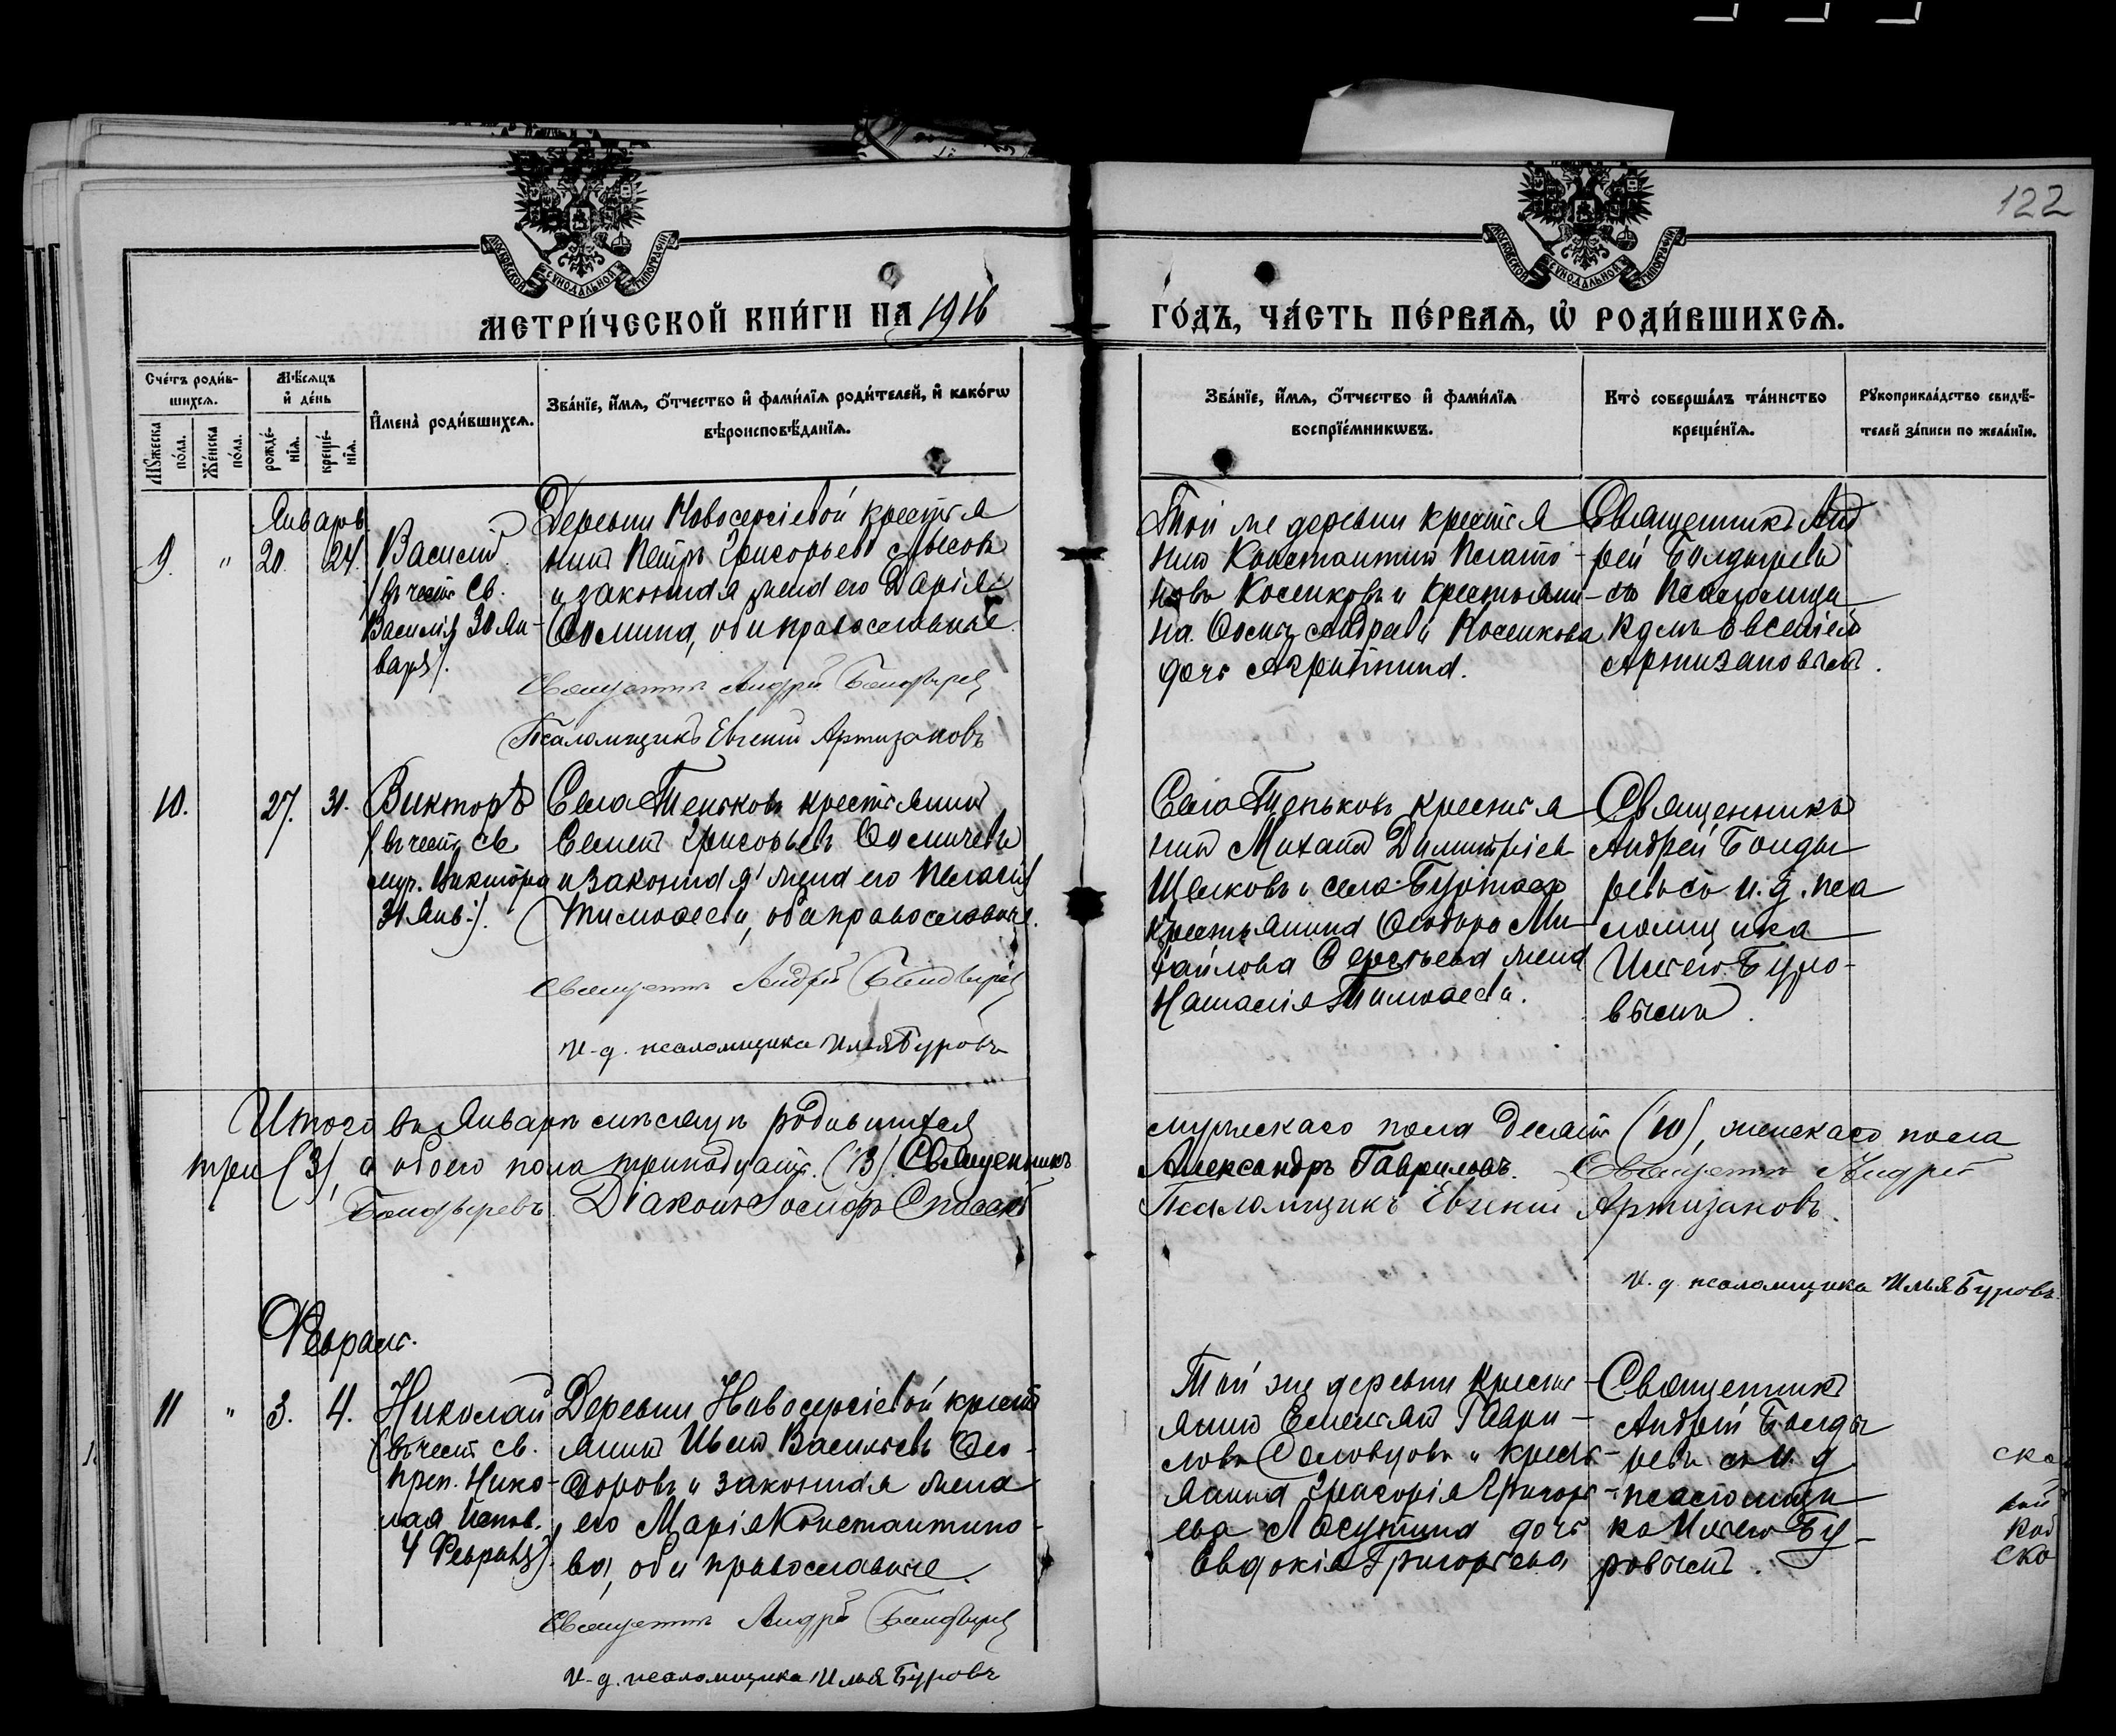 122
МОСКОВСКОЙ СѴНОДАЛЬНОЙ ТИПОГРАФІИ
МОСКОВСКОЙ СѴНОДАЛЬНОЙ ТИПОГРАФІИ
МЕТРИ́ЧЕСКОЙ КНИ́ГИ НА 1916
ГО́ДЪ, ЧА́СТЬ ПЕ́РВАѦ, Ѡ҆ РОДИ́ВШИХСѦ.
Сче́тъ роди́в-
шихсѧ.
Мѣ́сѧцъ
и҆ де́нь
Мꙋ́жеска по́ла.
Же́нска по́ла.
рожде́-
нїѧ.
креще́-
нїѧ.
И҆мена̀ роди́вшихсѧ.
Зва́нїе, и҆́мѧ, ѻ҆́тчество и҆ фами́лїѧ роди́телей, и҆ како́гѡ
вѣроисповѣ́данїѧ.
Зва́нїе, и҆́мѧ, ѻ҆́тчество и҆ фами́лїѧ
воспрїе́мникѡвъ.
Кто̀ соверша́лъ та́инство
креще́нїѧ.
Рꙋкоприкла́дство свидѣ́-
телей за́писи по жела́нїю.
Январь
9. " 20. 24.
Василій
(въ честь Св.
Василія 30 Ян-
варя).
Деревни Новосергіевой крестья
нинъ Петръ Григорьевъ
и законная жена его Дарія
Фомина, оба православные
Священникъ Андрей Болдыревъ
Псаломщикъ Евгеній Артизановъ
Той же деревни крестья
нинъ Константинъ Плато-
новъ Косенковъ и крестьяни-
на Косенкова
дочь Агриппина.
Священникъ Анд
рей Болдыревъ
съ Псаломщи
комъ Евгеніемъ
Артизановымъ.
10. 27. 31.
Викторъ
(въ честь св.
муч. Виктора
31 Янв.).
Села Теньковъ крестьянинъ
Семенъ Григорьевъ Фомичевъ
и законная жена его Пелагія
Тимофеева, оба православные.
Священникъ Андрей Болдыревъ
И. д. псаломщика Илья Буровъ
Села Теньковъ крестья
нинъ Михаилъ Димитріевъ
Щелковъ и села Буртасъ
крестьянина Феодора Ми-
хайлова жена
Наталія Тимофеева.
Священникъ
Андрей Болды
ревъ съ и. д. пса
ломщика
Ильею Буро-
вымъ.
Итого въ Январѣ мѣсяцѣ родившихся
мужескаго пола десять (10), женскаго пола
три (3), а обоего пола тринадцать (13). Священникъ
Александръ Гавриловъ. Священникъ Андрей
Болдыревъ. Діаконъ Іосифъ Спасскій
Псаломщикъ Евгеній Артизановъ.
И. д. псаломщика Илья Буровъ.
Февраль.
11 " 3. 4.
Николай
(въ честь св.
преп. Нико-
лая Испов.
4 Февраля)
Деревни Новосергіевой кресть
янинъ Иванъ Васильевъ Фео-
доровъ и законная жена
его Марія Константино-
ва, оба православные.
Священникъ Андрей Болдыревъ
И. д. псаломщика Илья Буровъ
Той же деревни кресть-
янинъ Емельянъ Гаври-
ловъ Соловцовъ и кресть-
янина Григорія Григорь-
ева Лосутина дочь
Евдокія Григорьева
Священникъ
Андрей Болды
ревъ съ и. д.
псаломщи
ка Ильею Бу-
ровымъ.